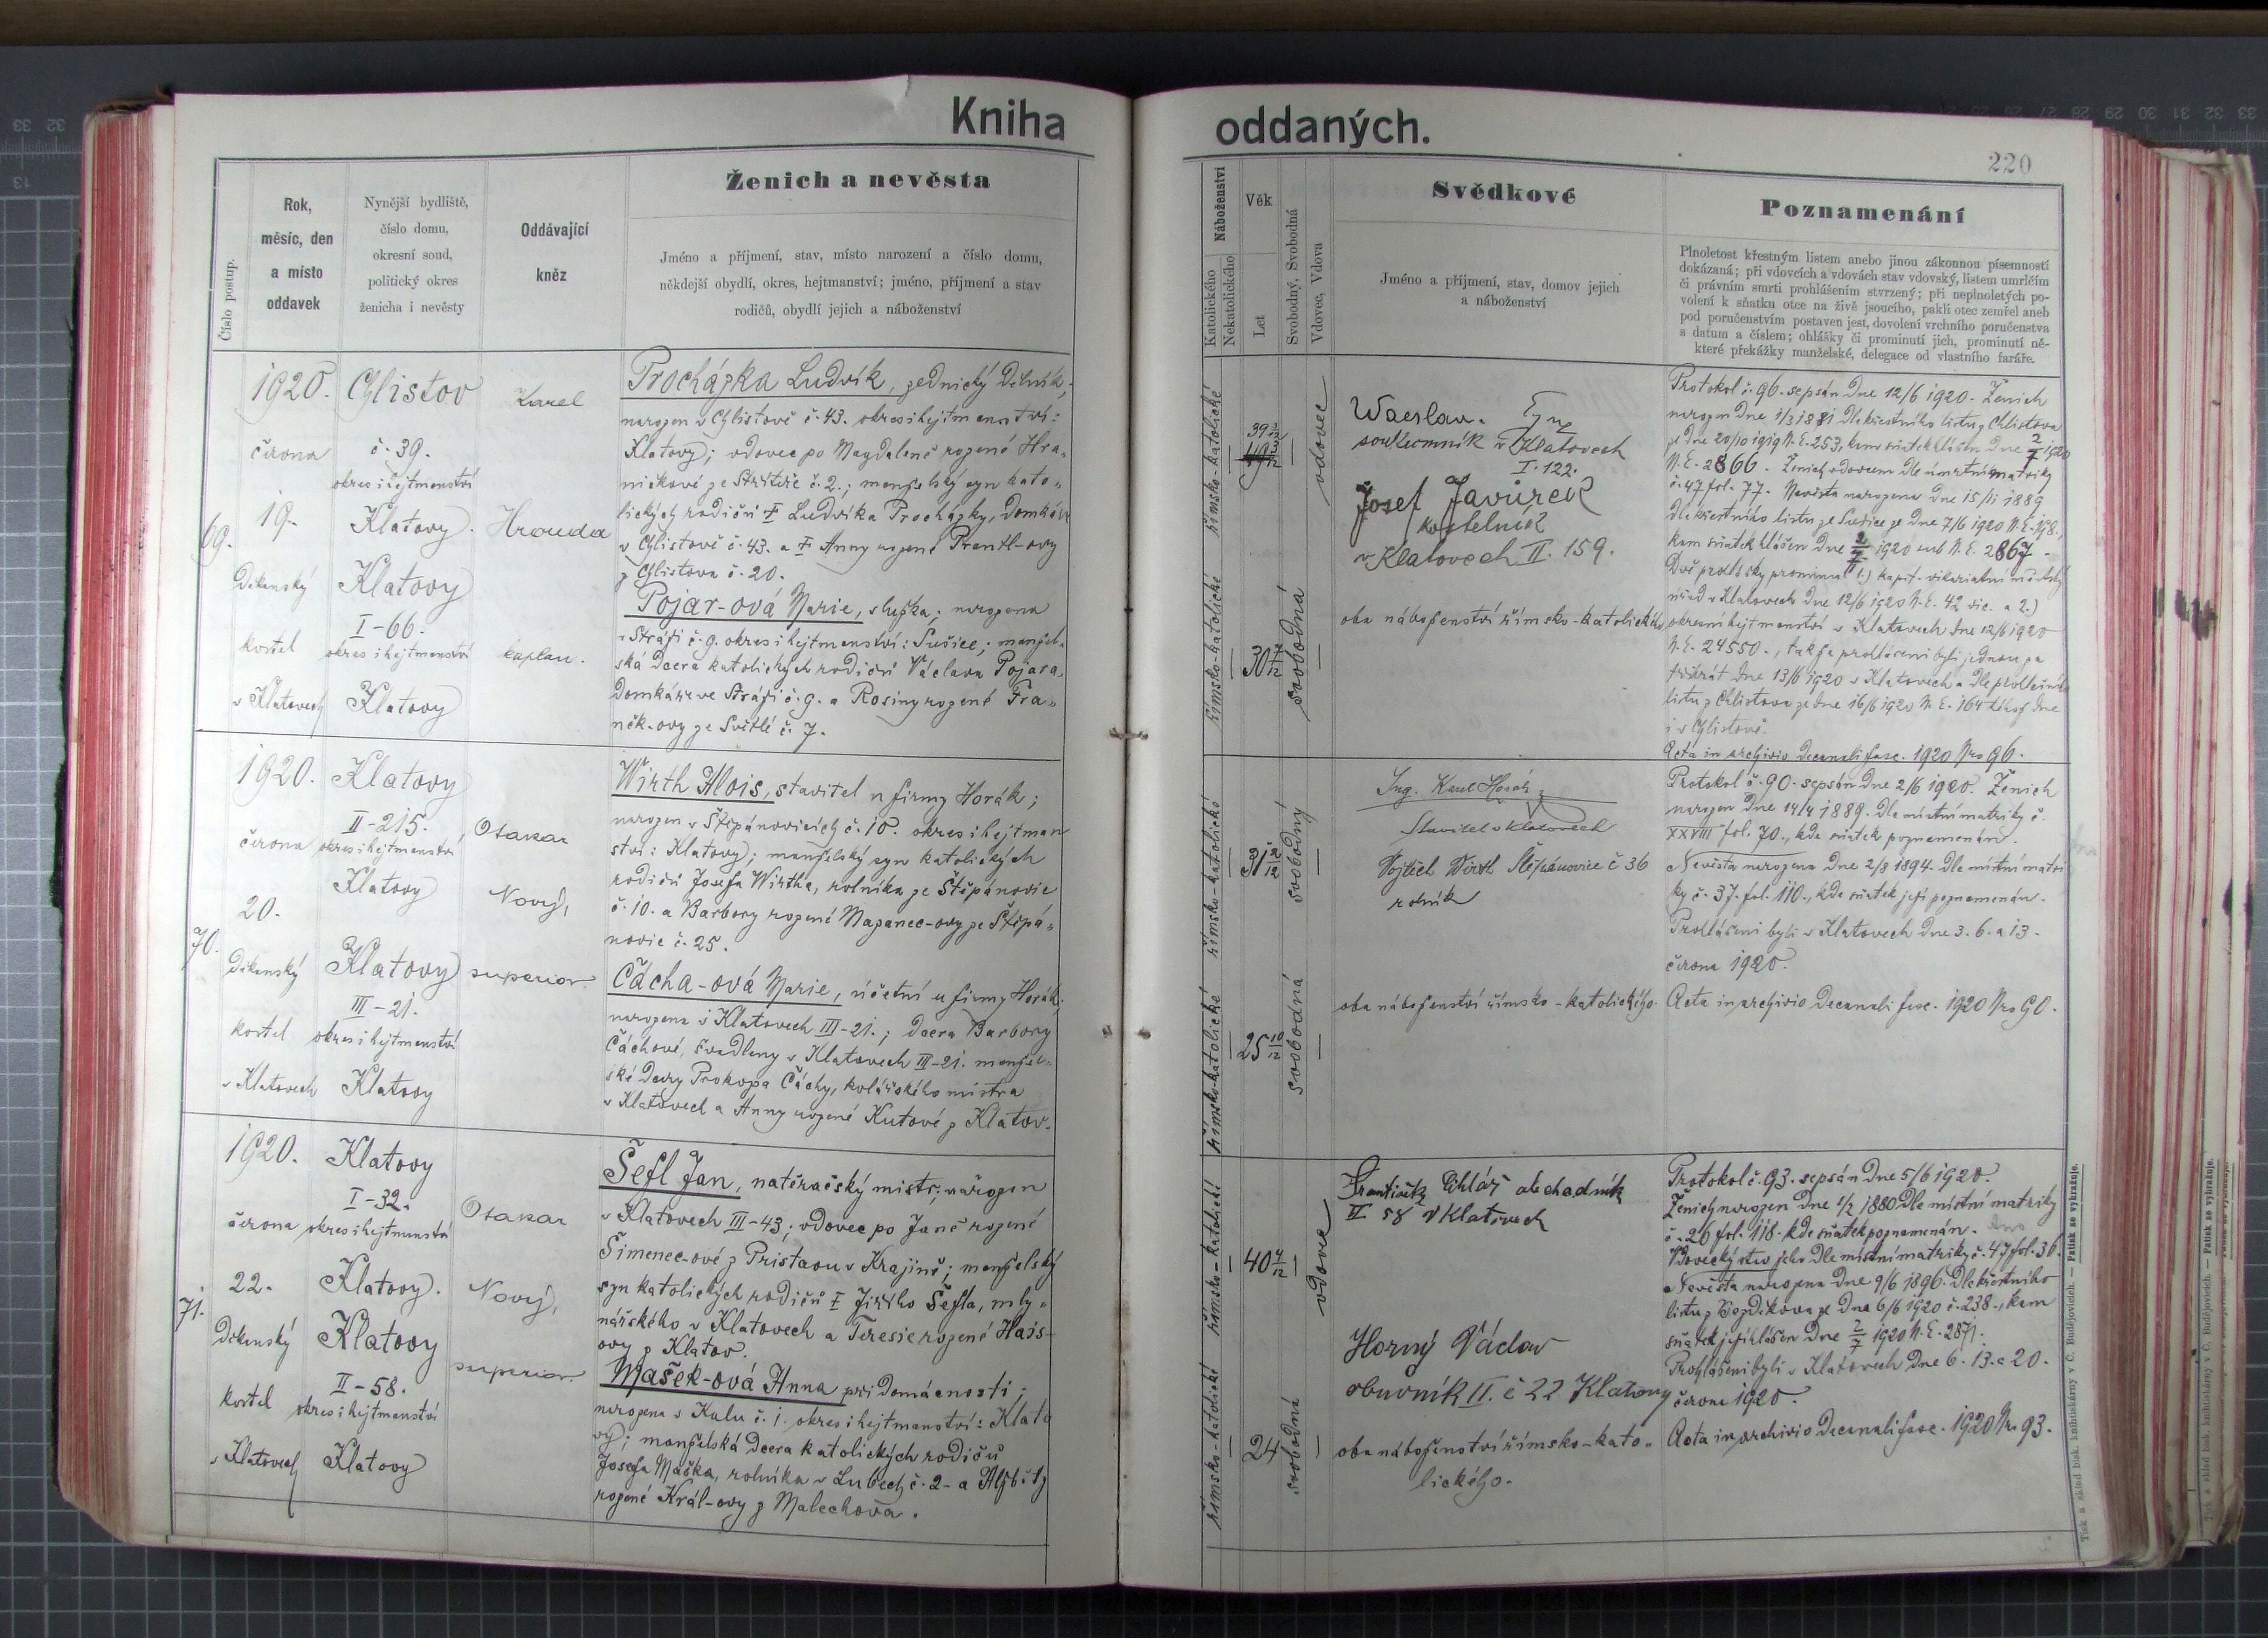 Kniha
oddaných.
220
Číslo postup.
Rok,
měsíc, den
a místo
oddavek
Nynější bydliště,
číslo domu,
okresní soud,
politický okres
ženicha i nevěsty
Oddávající
kněz
Ženich a nevěsta
Jméno a příjmení, stav, místo narození a číslo domu,
někdejší obydlí, okres, hejtmanství; jméno, příjmení a stav
rodičů, obydlí jejich a náboženství
Náboženství
Katolického
Nekatolického
Věk
Let
Svobodný, Svobodná
Vdovec, Vdova
Svědkové
Jméno a příjmení, stav, domov jejich
a náboženství
Poznamenání
Plnoletost křestným listem anebo jinou zákonnou písemností
dokázaná; při vdovcích a vdovách stav vdovský, listem umrlčím
či právním smrti prohlášením stvrzený; při neplnoletých po-
volení k sňatku otce na živě jsoucího, pakli otec zemřel aneb
pod poručenstvím postaven jest, dovolení vrchního poručenstva
s datum a číslem; ohlášky či prominutí jich, prominutí ně-
které překážky manželské, delegace od vlastního faráře.
69.
1920.
června
19.
Děkanský
kostel
v Klatovech
Chlistov
č. 39.
okres i hejtmanství
Klatovy.
Klatovy
I-66.
okres i hejtmanství
Klatovy
Karel
Hrouda
kaplan.
Procházka Ludvík, zednický dělník,
narozen v Chlistově č. 43. okres i hejtmanství:
Klatovy; vdovec po Magdaleně rozené Hra-
ničkové ze Střítěže č. 2.; manželský syn kato-
lických rodičů † Ludvíka Procházky, domkáře
v Chlistově č. 43. a † Anny rozené Prantl-ovy
z Chlistova č. 20.
Pojar-ová Marie, služka; narozena
v Stráži č. 9. okres i hejtmanství: Sušice; manžel-
ská dcera katolických rodičů Václava Pojara,
domkáře ve Stráži č. 9. a Rosiny rozené Fra-
něk-ovy ze Světlé č. 7.
římsko-katolické
římsko-katolické
39 3/12
30 7/12
vdovec
svobodná
Waeslav. Tyne
soukromník v Klatovech
I. 122.
Josef Javůrek
kostelník
v Klatovech II. 159.
oba náboženství římsko-katolického
Protokol č. 96. sepsán dne 12/6 1920. Ženich
narozen dne 1/3 1881 dle křestního listu z Chlistova
ze dne 20/10 1919 N. E. 253, kam sňatek hlášen dne 2/7 1920
N. E. 2866. Ženich vdovcem dle úmrtní matriky
č. 47 fol. 77. Nevěsta narozena dne 15/11 1889
dle křestního listu ze Sušice ze dne 7/6 1920 N. E. 198.,
kam sňatek hlášen dne 2/7 1920 sub N. E. 2867.
Dvě prohlášky prominul 1.) kapit. vikariátní městský
úřad v Klatovech dne 12/6 1920 N. E. 42 vic. a 2.)
okresní hejtmanství v Klatovech dne 12/6 1920
N. E. 24550., takže prohlášeni byli jednou za
třikrát dne 13/6 1920 v Klatovech a dle prohlašního
listu z Chlistova ze dne 16/6 1920 N. E. 164 téhož dne
i v Chlistově.
Acta in archivio decanali fasc. 1920 Nro 96.
70.
1920.
června
20.
Děkanský
kostel
v Klatovech
Klatovy
II-215.
okres i hejtmanství
Klatovy
Klatovy
III-21.
okres i hejtmanství
Klatovy
Otakar
Nový,
superior.
Wirth Alois, stavitel u firmy Horák;
narozen v Štěpánovicích č. 10. okres i hejtman
ství: Klatovy; manželský syn katolických
rodičů Josefa Wirtha, rolníka ze Štěpánovic
č. 10. a Barbory rozené Mazanec-ovy ze Štěpá-
novic č. 25.
Čácha-ová Marie, účetní u firmy Horák;
narozena v Klatovech III-21.; dcera Barbory
Čáchové, švadleny v Klatovech III-21. manžel-
ské dcery Prokopa Čáchy, kolářského mistra
v Klatovech a Anny rozené Kutové z Klatov.
římsko-katolické
římsko-katolické
31 2/12
25 10/12
svobodný
svobodná
Ing. Karel Horák
Stavitel v Klatovech
Vojtěch Wirth Štěpánovice č 36
rolník
oba náboženství římsko-katolického.
Protokol č. 90. sepsán dne 2/6 1920. Ženich
narozen dne 14/4 1889. Dle místní matriky č.
XXVIII fol. 70., kde sňatek poznamenán.
Nevěsta narozena dne 2/8 1894. Dle místní matri
ky č. 37. fol. 110., kde sňatek její poznamenán.
Prohlášeni byli v Klatovech dne 3. 6. a 13.
června 1920.
Acta in archivio decanali fasc. 1920 Nro 90.
71.
1920.
června
22.
Děkanský
kostel
v Klatovech
Klatovy
I-32.
okres i hejtmanství
Klatovy.
Klatovy
II-58.
okres i hejtmanství
Klatovy
Otakar
Nový,
superior.
Šefl Jan, natěračský mistr; narozen
v Klatovech III-43; vdovec po Janě rozené
Šimenec-ové z Pristavu v Krajině; manželský
syn katolických rodičů † Jiřího Šefla, mly-
nářského v Klatovech a Teresie rozené Hais-
ovy z Klatov.
Mašek-ová Anna při domácnosti;
narozena v Kalu č. 1. okres i hejtmanství: Klato
vy; manželská dcera katolických rodičů
Josefa Maška, rolníka v Lubech č. 2. a Alžběty
rozené Král-ovy z Malechova.
římsko-katolické
římsko-katolické
40 4/12
24
vdovec
svobodná
František Uhlář obchodník
II 58 v Klatovech
Horný Václav
obuvník II. č 22 Klatovy
oba náboženství římsko-kato-
lického.
Protokol č. 93. sepsán dne 5/6 1920.
Ženich narozen dne 1/2 1880 Dle místní matriky
č. 26 fol. 118. kde sňatek poznamenán.
Vdovecký stav jeho dle místní matriky č. 47 fol. 36.
Nevěsta narozena dne 9/6 1896. Dle křestního
listu z Bezděkova ze dne 6/6 1920 č. 238., kam
sňatek její hlášen dne 2/7 1920 N. E. 2871.
Prohlášeni byli v Klatovech dne 6. 13. a 20.
června 1920.
Acta in archivio decanali fasc. 1920 Nro 93.
Tisk a sklad bisk. knihtiskárny v Č. Budějovicích. — Patisk se vyhražuje.